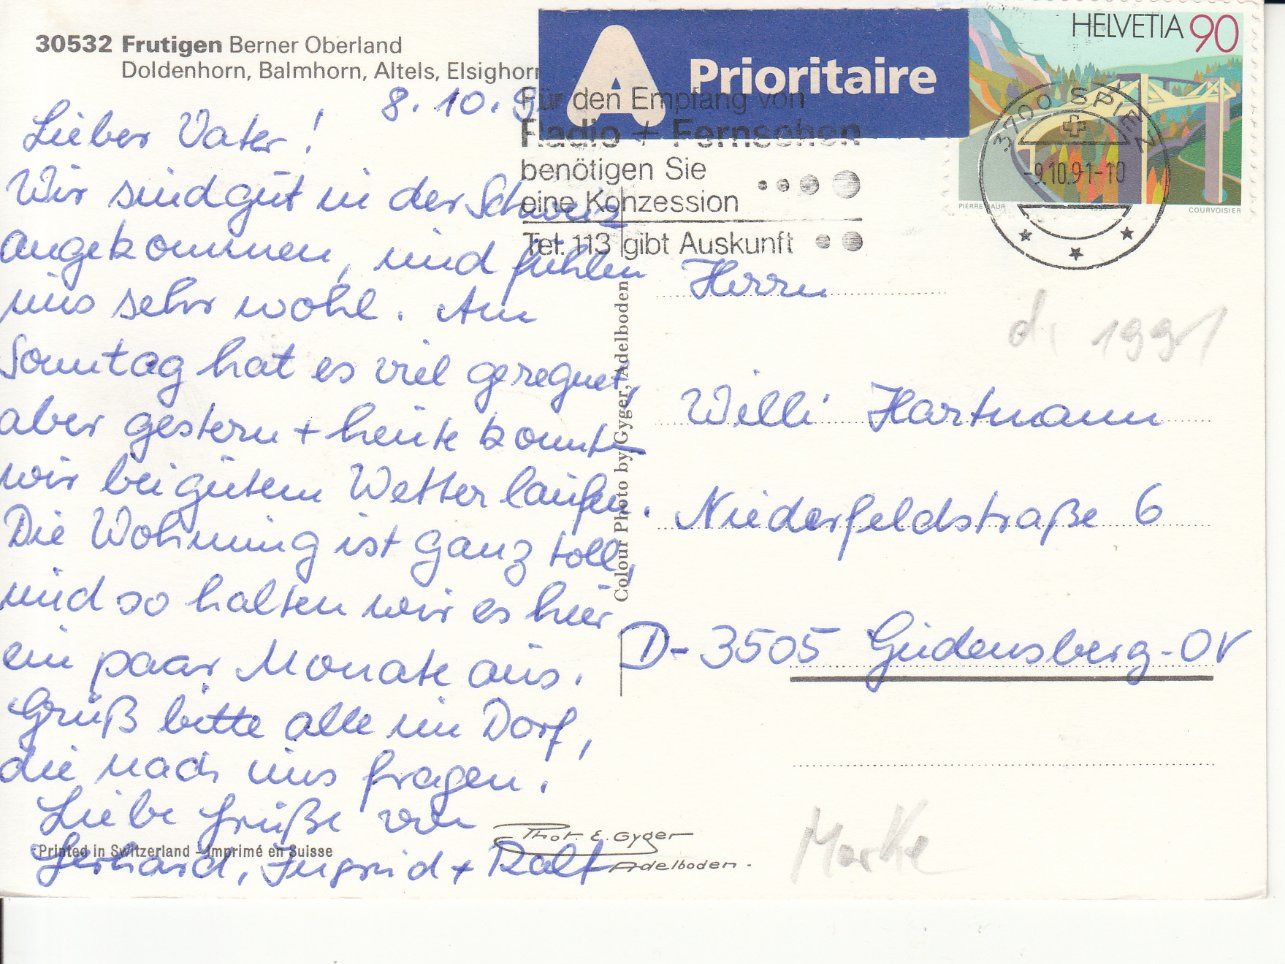 30532 Frutigen Berner Oberland
Doldenhorn, Balmhorn, Altels, Elsighorn
8.10.9
Lieber Vater!
Wir sind gut in der Schweiz
angekommen, und fühlen
uns sehr wohl. Am
Sonntag hat es viel geregnet,
aber gestern + heute konnten
wir bei gutem Wetter laufen.
Die Wohnung ist ganz toll,
und so halten wir es hier
ein paar Monate aus.
Grüß bitte alle im Dorf,
die nach uns fragen!
Liebe Grüße von
Gerhard, Ingrid + Ralf
Printed in Switzerland - Imprimé en Suisse
A Prioritaire
Für den Empfang von
Radio + Fernsehen
benötigen Sie
eine Konzession
Tel. 113 gibt Auskunft
HELVETIA 90
PIERRE BAUR
COURVOISIER
3700 SPIEZ
-9.10.91-10
Colour Photo by Gyger, Adelboden
Herrn
d. 1991
Willi Hartmann
Niederfeldstraße 6
D-3505 Gudensberg-OV
Phot. E. Gyger
Adelboden.
Marke